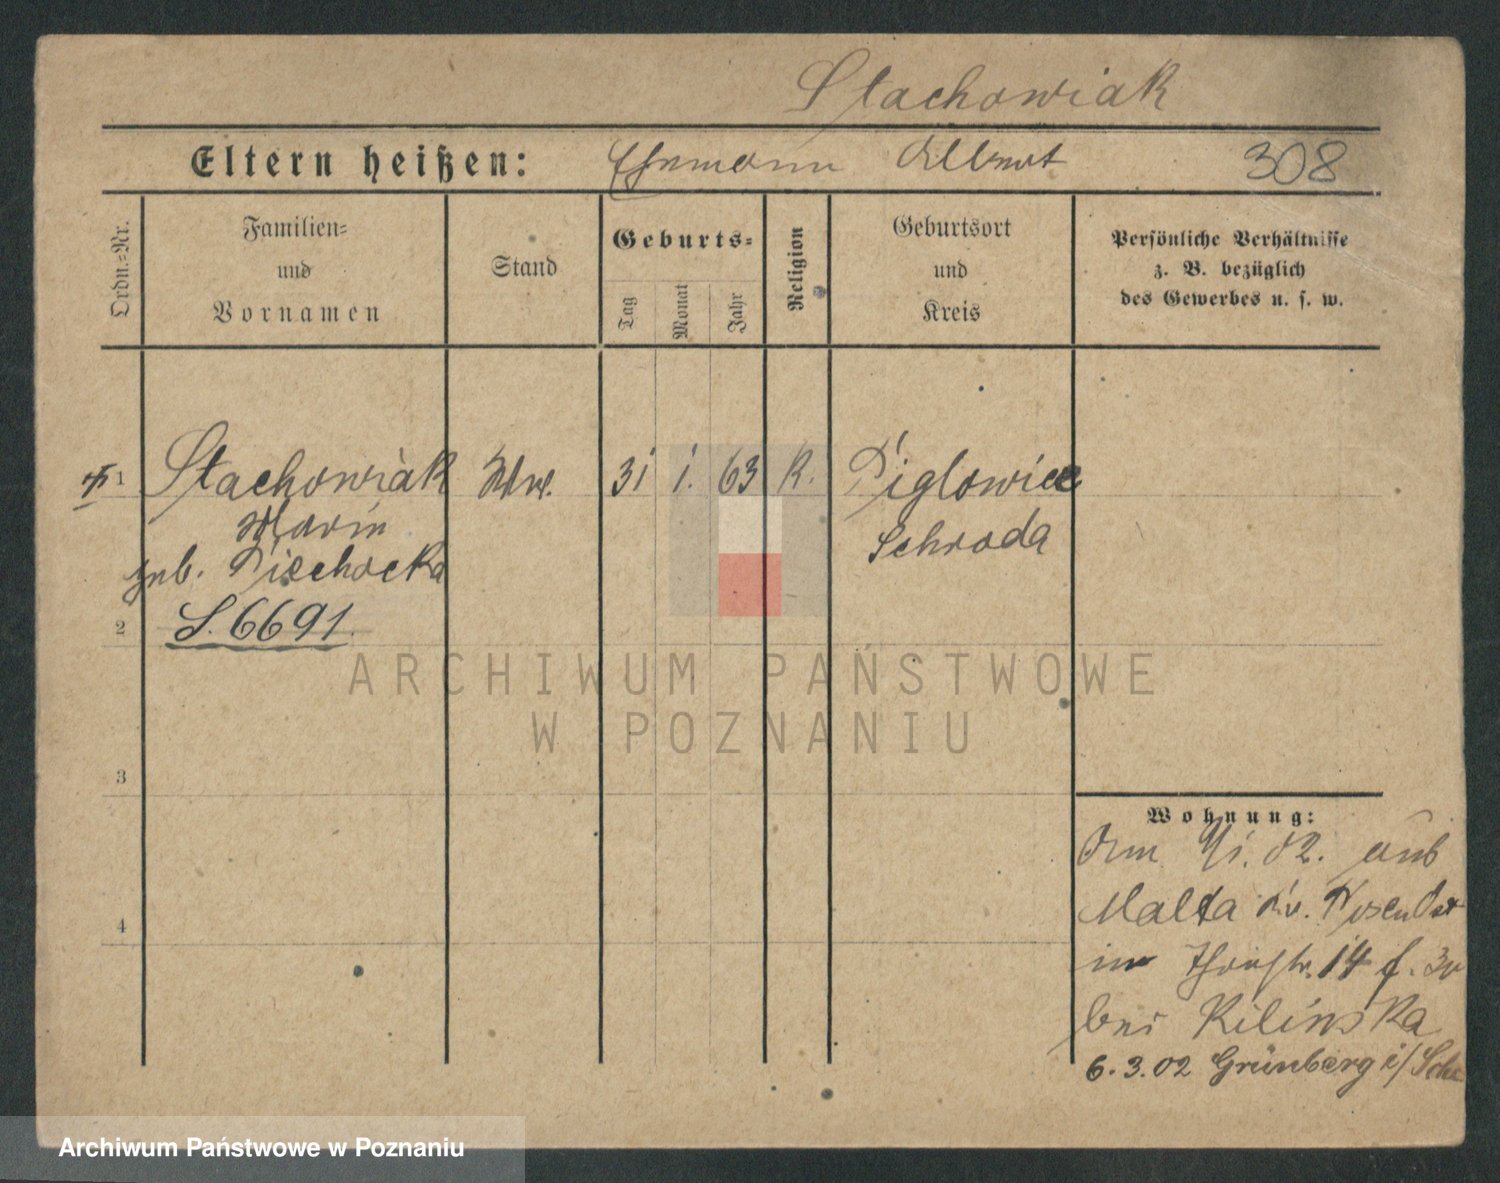 Stachowiak
Eltern heißen: Ehemann Albert 308
Ordn.-Nr.
Familien-
und
Vornamen
Stand
Geburts-
Tag
Monat
Jahr
Religion
Geburtsort
und
Kreis
Persönliche Verhältnisse
z. B. bezüglich
des Gewerbes u. s. w.
1 Stachowiak Ww. 31 1. 63 K. Piglowice
Marie Schroda
geb. Piechocka
2 S. 6691.
ARCHIWUM PAŃSTWOWE
W POZNANIU
3
4
Wohnung:
Am 02. aus
Malta Kr. Posen Ost
in 14
bei Kilinska
6.3.02 Grünberg i/Schl.
Archiwum Państwowe w Poznaniu